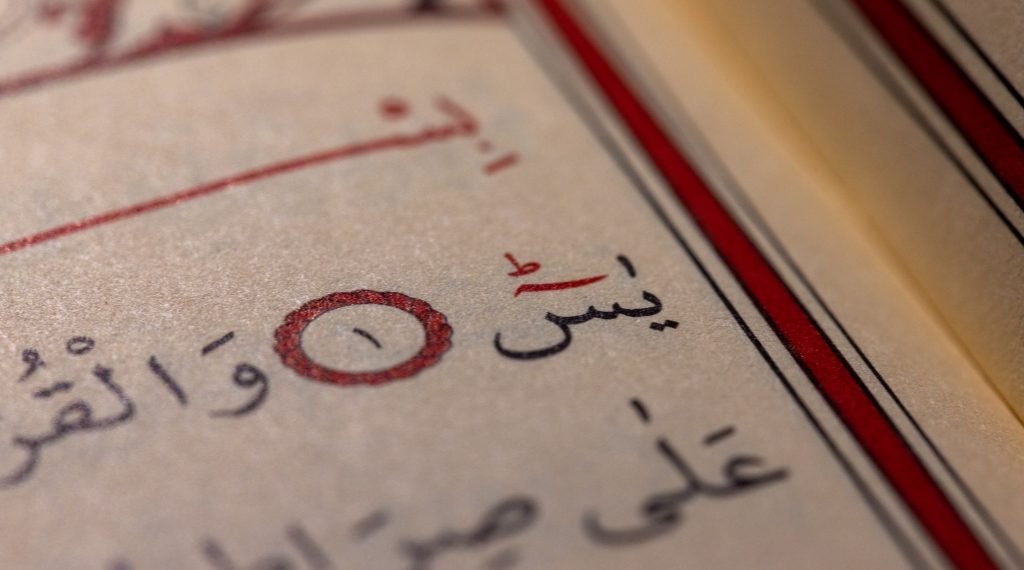 يٰسٓ ؕ ١ وَالْقُر
عَلٰى صِرَاط